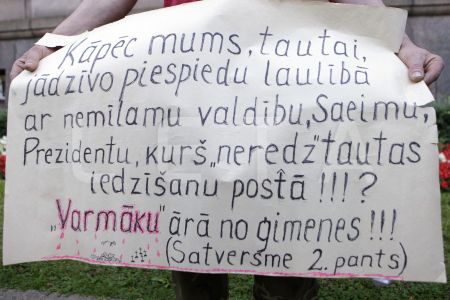 Kāpēc mums, tautai,
jādzīvo piespiedu laulībā
ar nemīlamu valdību, Saeimu,
Prezidentu, kurš „neredz” tautas
iedzīšanu postā !!!?
„Varmāku” ārā no ģimenes !!!
(Satversme 2. pants)